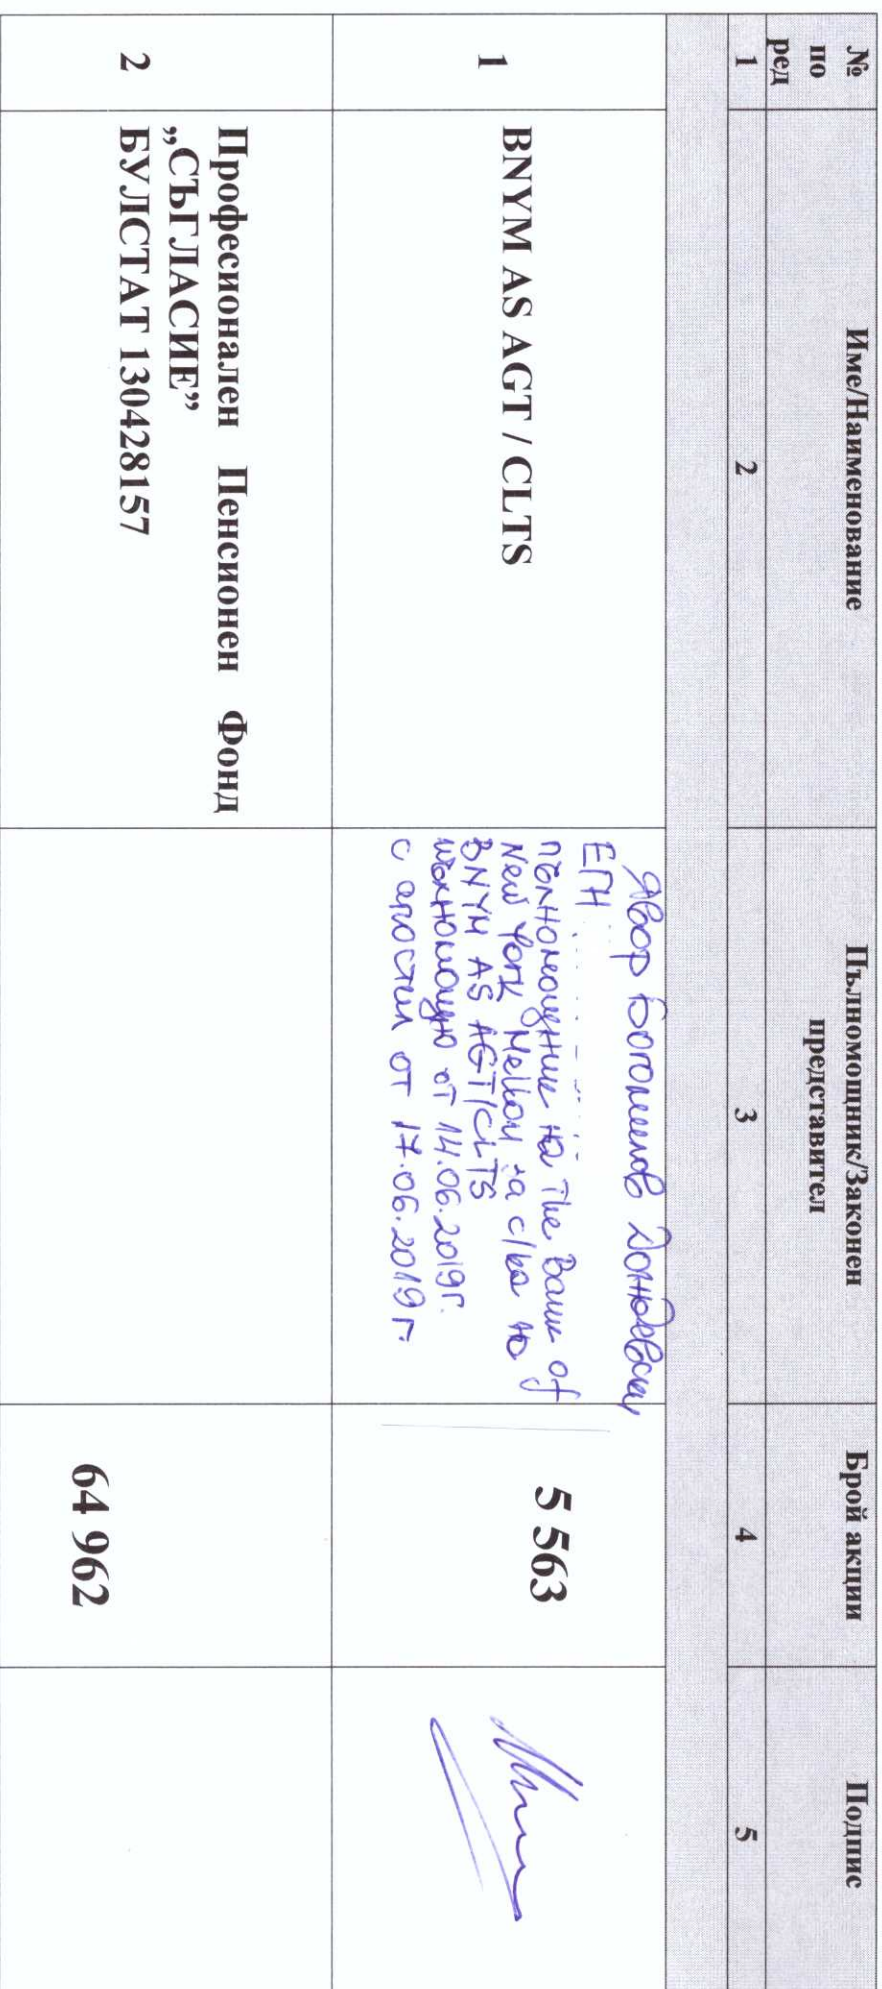 № по ред
Име/Наименование
Пълномощник/Законен представител
Брой акции
Подпис
1
2
3
4
5
1
BNYM AS AGT / CLTS
Явор Богомилов
ЕГН
пълномощник на The Bank of
New York Mellon за с/ка на
BNYM AS AGT/CLTS
пълномощно от 14.06.2019г.
с апостил от 17.06.2019г.
5 563
2
Професионален Пенсионен Фонд
„СЪГЛАСИЕ”
БУЛСТАТ 130428157
64 962